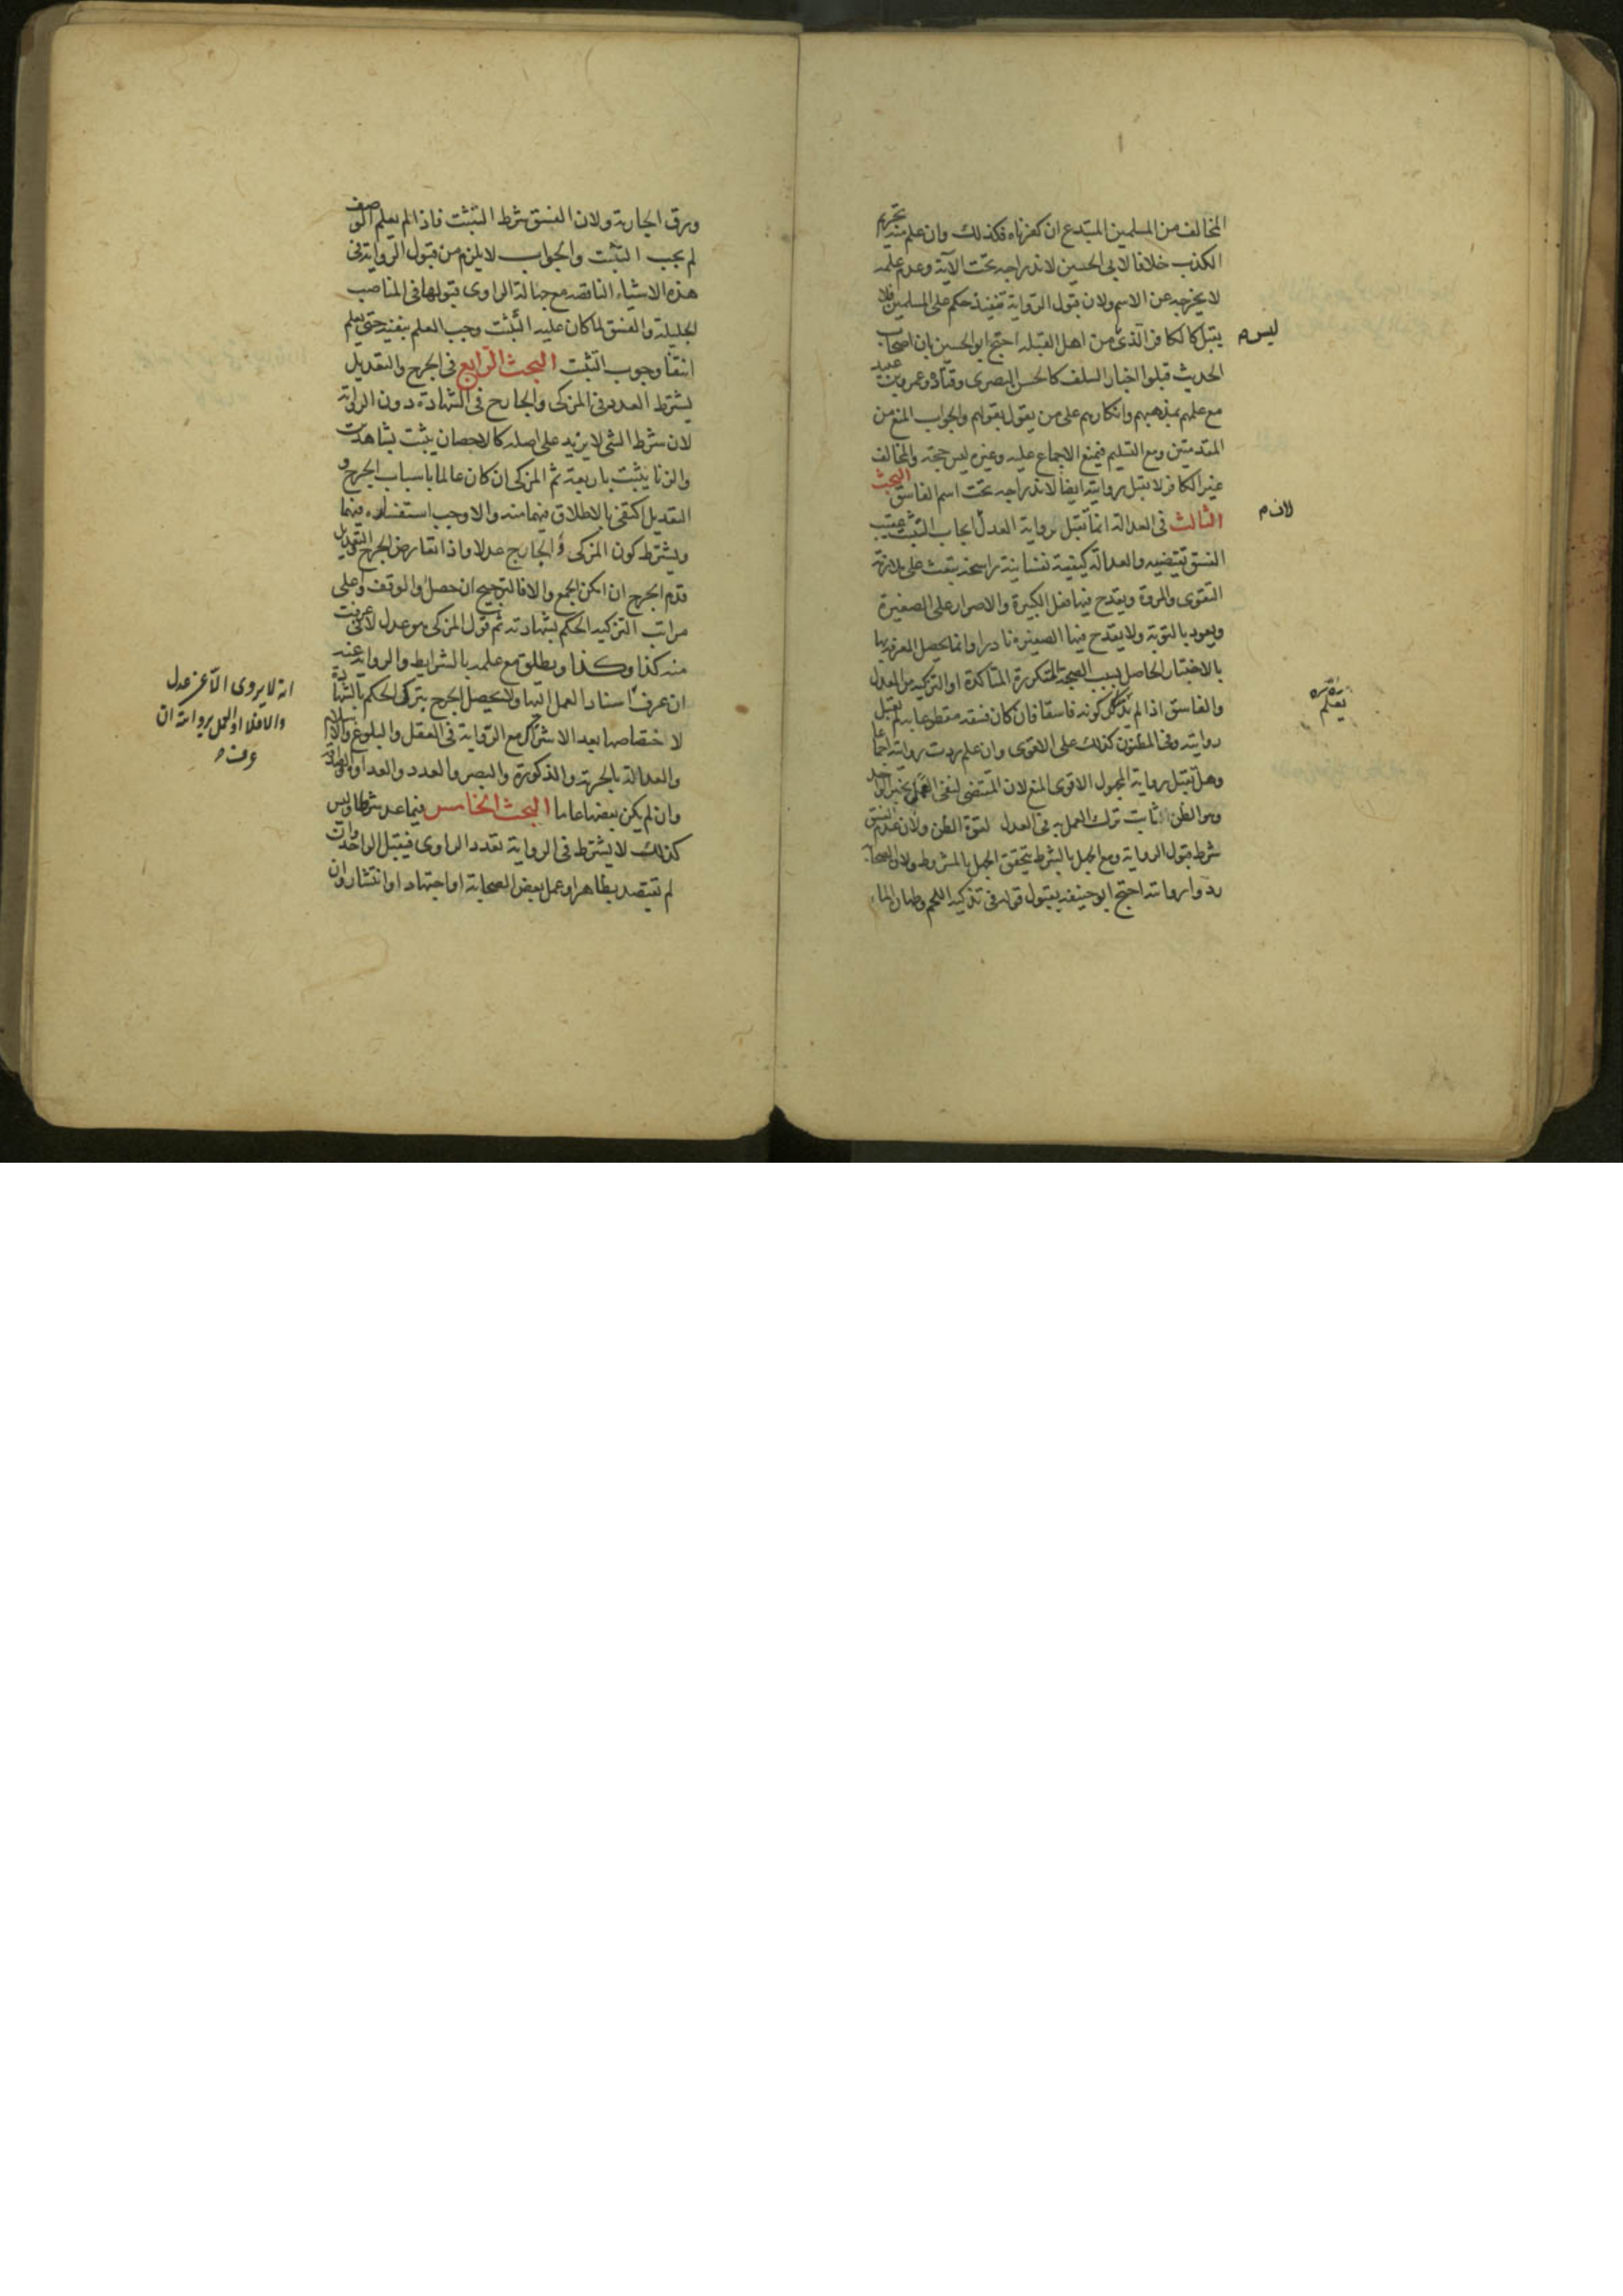 المخالف من المسلمين المبتدع ان كفرناه فكذلك وان علم منه تحريم
الكذب خلافا لابي الحسين لاندراجه تحت الآية وعدم علمه
لا يخرجه عن الاسم ولان قبول الرواية تنفيذ حكم على المسلمين فلا
يقبل كالكافر الذي من اهل القبلة احتج ابو الحسين بان اصحاب
ليس م
الحديث قبلوا اخبار السلف كالحسن البصري وقتادة وعمرو بن عبيد
مع علمهم بمذهبهم وانكارهم على من يقول بقولهم والجواب المنع من
المقدمتين ومع التسليم فيمنع الاجماع عليه وغيره ليس حجة والمخالف
غير الكافر لا تقبل روايته ايضا لاندراجه تحت اسم الفاسق البحث
الثالث في العدالة انما تقبل رواية العدل ايجاب التثبت عقيب
لان م
الفسق تقتضيه والعدالة كيفية نفسانية راسخة تبعث على ملازمة
التقوى والمروة ويقدح فيها فعل الكبيرة والاصرار على الصغيرة
ويعود بالتوبة ولا يقدح فيها الصغيرة نادرا وانما يحصل المعرفة بها
بالاختبار الحاصل بسبب الصحبة المتكررة المتأكدة او التزكية من العدل
والفاسق اذا لم كونه فاسقا فان كان فسقه مقطوعا به لم تقبل
يعلم
روايته وفي المظنون كذلك على الاقوى وان علم ردت روايته اجماعا
وهل تقبل رواية المجهول الاقوى المنع لان المقتضي لنفي العمل بخبر الواحد
وهو الظن ثابت ترك العمل به في العدل لقوة الظن ولان عدم الفسق
شرط قبول الرواية ومع الجهل بالشرط يتحقق الجهل بالمشروط ولان الصحابة
ردوا روايته احتج ابو حنيفة بقبول قوله في تذكية اللحم وطهارة الماء
ورق الجارية ولان الفسق شرط التثبت فاذا لم يعلم الوصف
لم يجب التثبت والجواب لا يلزم من قبول الرواية في
هذه الاشياء الناقصه مع جهالة الراوي قبولها في المناصب
الجليلة والفسق لما كان علية التثبت وجب العلم بنفيه حتى يعلم
انتفا وجوب التثبت البحث الرابع في الجرح والتعديل
يشترط العدد في المزكي والجارح في الشهادة دون الرواية
لان شرط الشي لا يزيد على اصله كالاحصان يثبت بشاهدين
والزنا يثبت باربعة ثم المزكي ان كان عالما باسباب الجرح و
التعديل اكتفي بالاطلاق فيهما منه والا وجب استفساره فيهما
ويشترط كون المزكي والجارح عدلا واذا تعارض الجرح والتعديل
قدم الجرح ان امكن الجمع والا فالترجيح ان حصل والا وقف واعلى
مراتب التزكية الحكم بشهادته ثم قول المزكي هو عدل لاني عرفت
منه كذا وكذا ويطلق مع علمه بالشرايط والرواية عنه
ان عرف اسناد العمل اليها ولا يحصل الجرح بترك الحكم بالشهادة
انه لا يروي الا عن عدل
والا فلا او العمل بروايته ان
عرف م
لاختصاصها بعد الاشتراك مع الرواية في العقل والبلوغ والاسلام
والعدالة بالحرية والذكورة والبصر والعدد والعداوة والصداقة
وان لم يكن بعضها عاما البحث الخامس فيما عد شرطا وليس
كذلك لا يشترط في الرواية تعدد الراوي فيقبل الواحد وان
لم تعتضد بظاهر او عمل بعض الصحابة او اجتهاد او انتشار وان